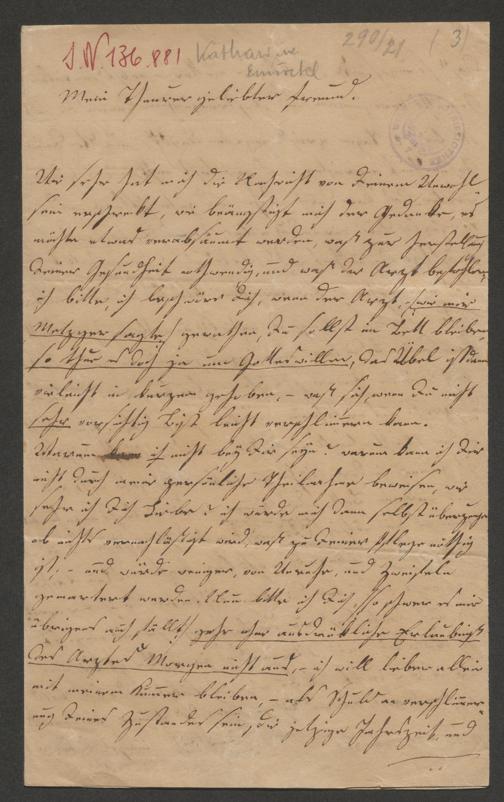 I.N. 136.881 Katharine 290/21 (3)
Mein Theurer geliebter Freund.
Wie sehr hat mich die Nachricht von Deinem Unwohl
sein erschrekt, wie beängstigt mich der Gedanke, es
möchte etwas verabsäumt werden, waß zur Herstellung
Deiner Gesundheit nothwendig, und waß der Arzt befohlen,
ich bitte, ich beschwöre Dich, wenn der Arzt, (wie mir
Metzger sagte) gerathen, Du sollst im Bett bleiben,
so thue es doch ja um Gotteswillen, das Übel ist dann
vieleicht in kurzem gehoben, – waß sich, wenn Du nicht
sehr vorsichtig bist leicht verschlimern kann.
Warum kann ich nicht bey Dir seyn? warum kann ich Dir
nicht durch meine persönliche Theilnahme beweisen, wie
sehr ich Dich Liebe? ich würde mich dann selbst überzeugen
ob nichts vernachläßigt wird, waß zu Deiner Pflege nöthig
ist, – und würde weniger, von Unruhe, und Zweifeln
gemartert werden. Nun bitte ich Dich, so schwer es mir
übrigens auch fällt, gehe ohne ausdrükliche Erlaubniß
des Arztes Morgen nicht aus, – ich will lieber allein
mit meinem Kumer bleiben, – als Schuld an verschlimer-
ung Deines Zustandes sein, die jetzige Jahrszeit, und